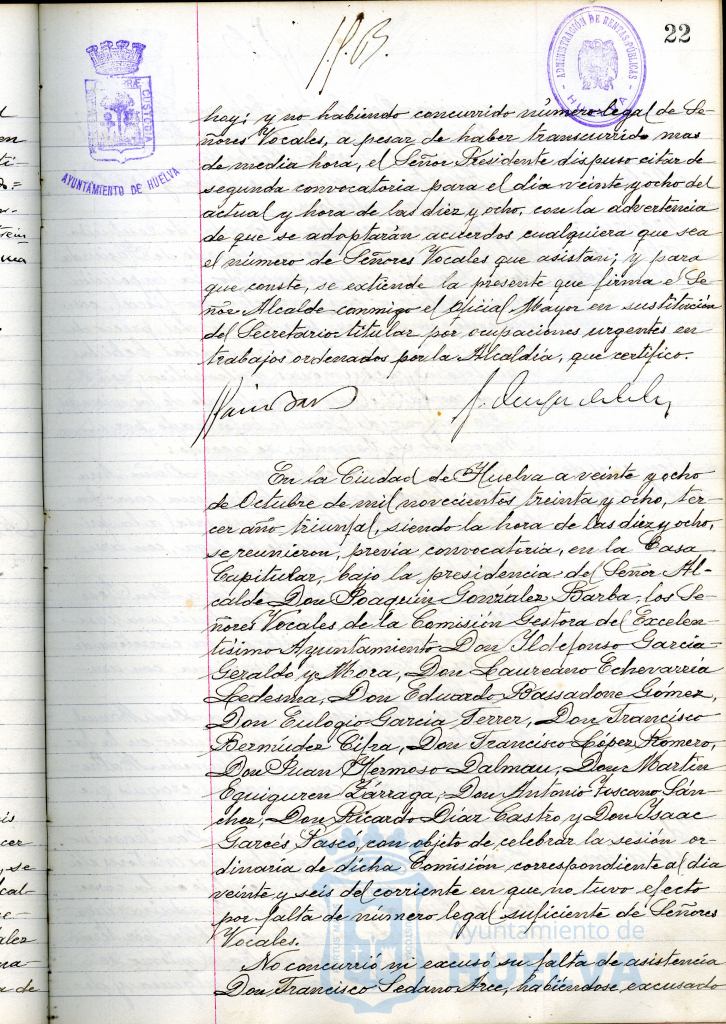 22
AYUNTAMIENTO DE HUELVA
ADMINISTRACIÓN DE RENTAS PÚBLICAS
HUELVA
hoy; y no habiendo concurrido número legal de Se-
ñores Vocales, a pesar de haber transcurrido mas
de media hora, el Señor Presidente dispuso citar de
segunda convocatoria para el dia veinte y ocho del
actual y hora de las diez y ocho, con la advertencia
de que se adoptarán acuerdos cualquiera que sea
el número de Señores Vocales que asistan; y para
que conste, se extiende la presente que firma el Se-
ñor Alcalde conmigo el Oficial Mayor en sustitución
del Secretario titular por ocupaciones urgentes en
trabajos ordenados por la Alcaldía, que certifico.
En la Ciudad de Huelva a veinte y ocho
de Octubre de mil novecientos treinta y ocho, ter
cer año triunfal, siendo la hora de las diez y ocho,
se reunieron, previa convocatoria, en la Casa
Capitular, bajo la presidencia del Señor Al-
calde Don Joaquin Gonzalez Barba, los Se-
ñores Vocales de la Comisión Gestora del Excelen-
tísimo Ayuntamiento Don Ildefonso Garcia-
Geraldo y Mora, Don Laureano Echevarria
Ledesma, Don Eduardo Bassadone Gómez,
Don Eulogio Garcia Ferrer, Don Francisco
Bermúdez Cifra, Don Francisco López Romero,
Don Juan Hermoso Dalmau, Don Martin
Eguiguren Zárraga, Don Antonio Toscano Sán-
chez, Don Ricardo Díaz Castro y Don Isaac
Garcés Pascó, con objeto de celebrar la sesión or-
dinaria de dicha Comisión correspondiente al dia
veinte y seis del corriente en que no tuvo efecto
por falta de número legal suficiente de Señores
Vocales.
Ayuntamiento de
HUELVA
No concurrió ni excusó su falta de asistencia
Don Francisco Sedano Arce, habiéndose excusado